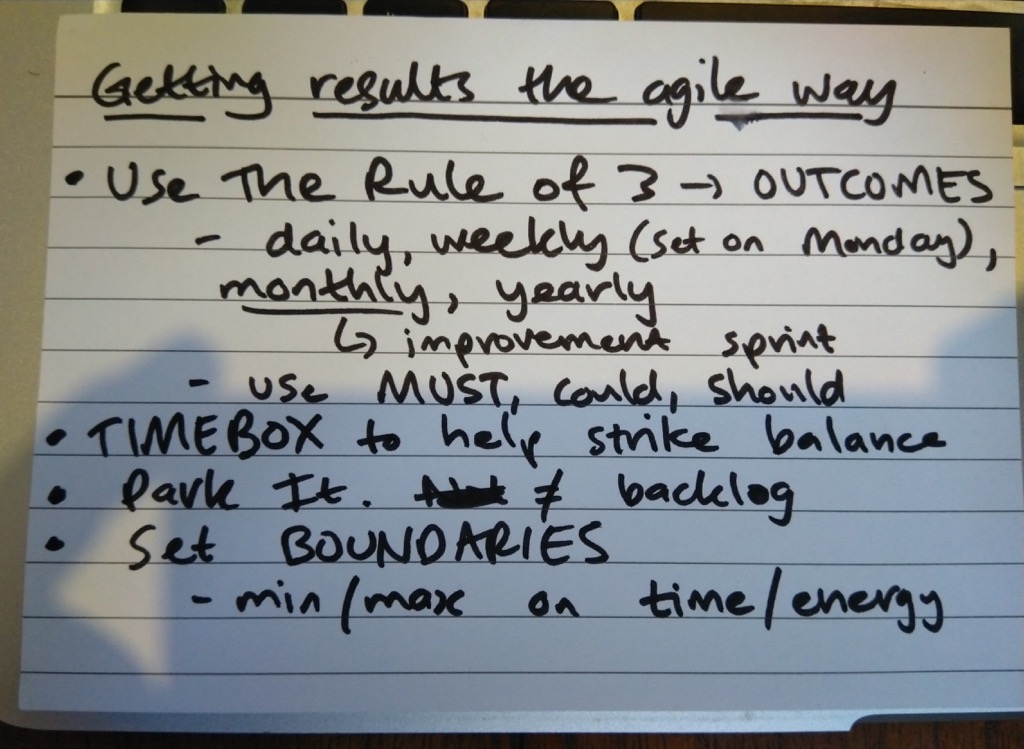 Getting results the agile way
• Use The Rule of 3 → OUTCOMES
- daily, weekly (set on Monday),
monthly, yearly
↳ improvement sprint
- use MUST, could, should
• TIMEBOX to help strike balance
• Park It. ≠ backlog
• Set BOUNDARIES
- min/max on time/energy